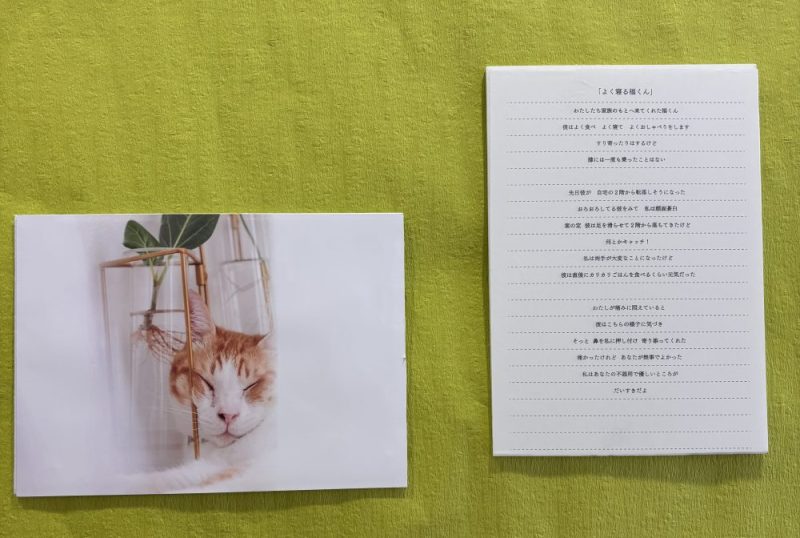 「よく寝る福くん」
わたしたち家族のもとへ来てくれた福くん
僕はよく食べ　よく寝て　よくおしゃべりをします
すり寄ったりはするけど
膝には一度も乗ったことはない
先日彼が　自宅の２階から転落しそうになった
おろおろしてる彼をみて　私は顔面蒼白
案の定 彼は足を滑らせて２階から落ちてきたけど
何とかキャッチ！
私は両手が大変なことになったけど
彼は直後にカリカリごはんを食べるくらい元気だった
わたしが痛みに悶えていると
彼はこちらの様子に気づき
そっと 鼻を私に押し付け 寄り添ってくれた
痛かったけれど あなたが無事でよかった
私はあなたの不器用で優しいところが
だいすきだよ